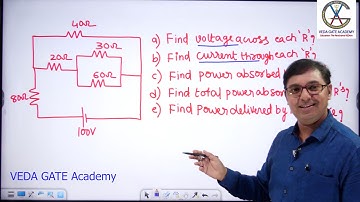 VEDA GATE ACADEMY
40Ω
20Ω
30Ω
60Ω
80Ω
100V
a) Find voltage across each 'R'?
b) Find current through each 'R'?
c) Find power absorbed
d) Find total power absor R's?
e) Find power delivered by
VEDA GATE Academy